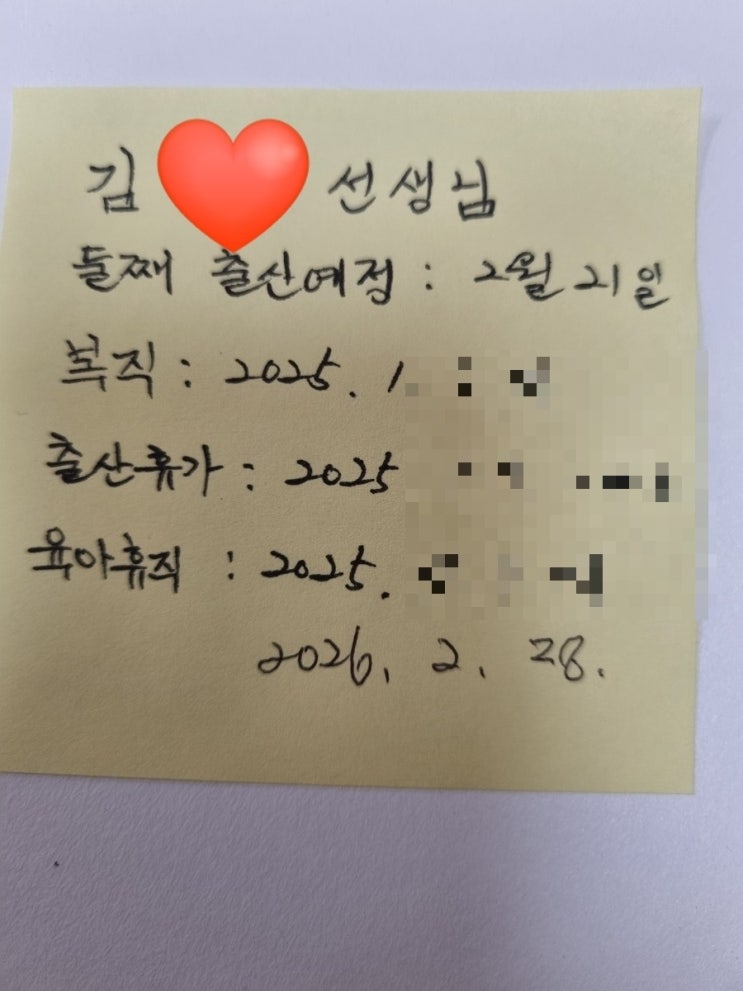 김 선생님
둘째 출산예정 : 2월 21일
복직 : 2025. 1
출산휴가 : 2025
육아휴직 : 2025.
2026. 2. 28.